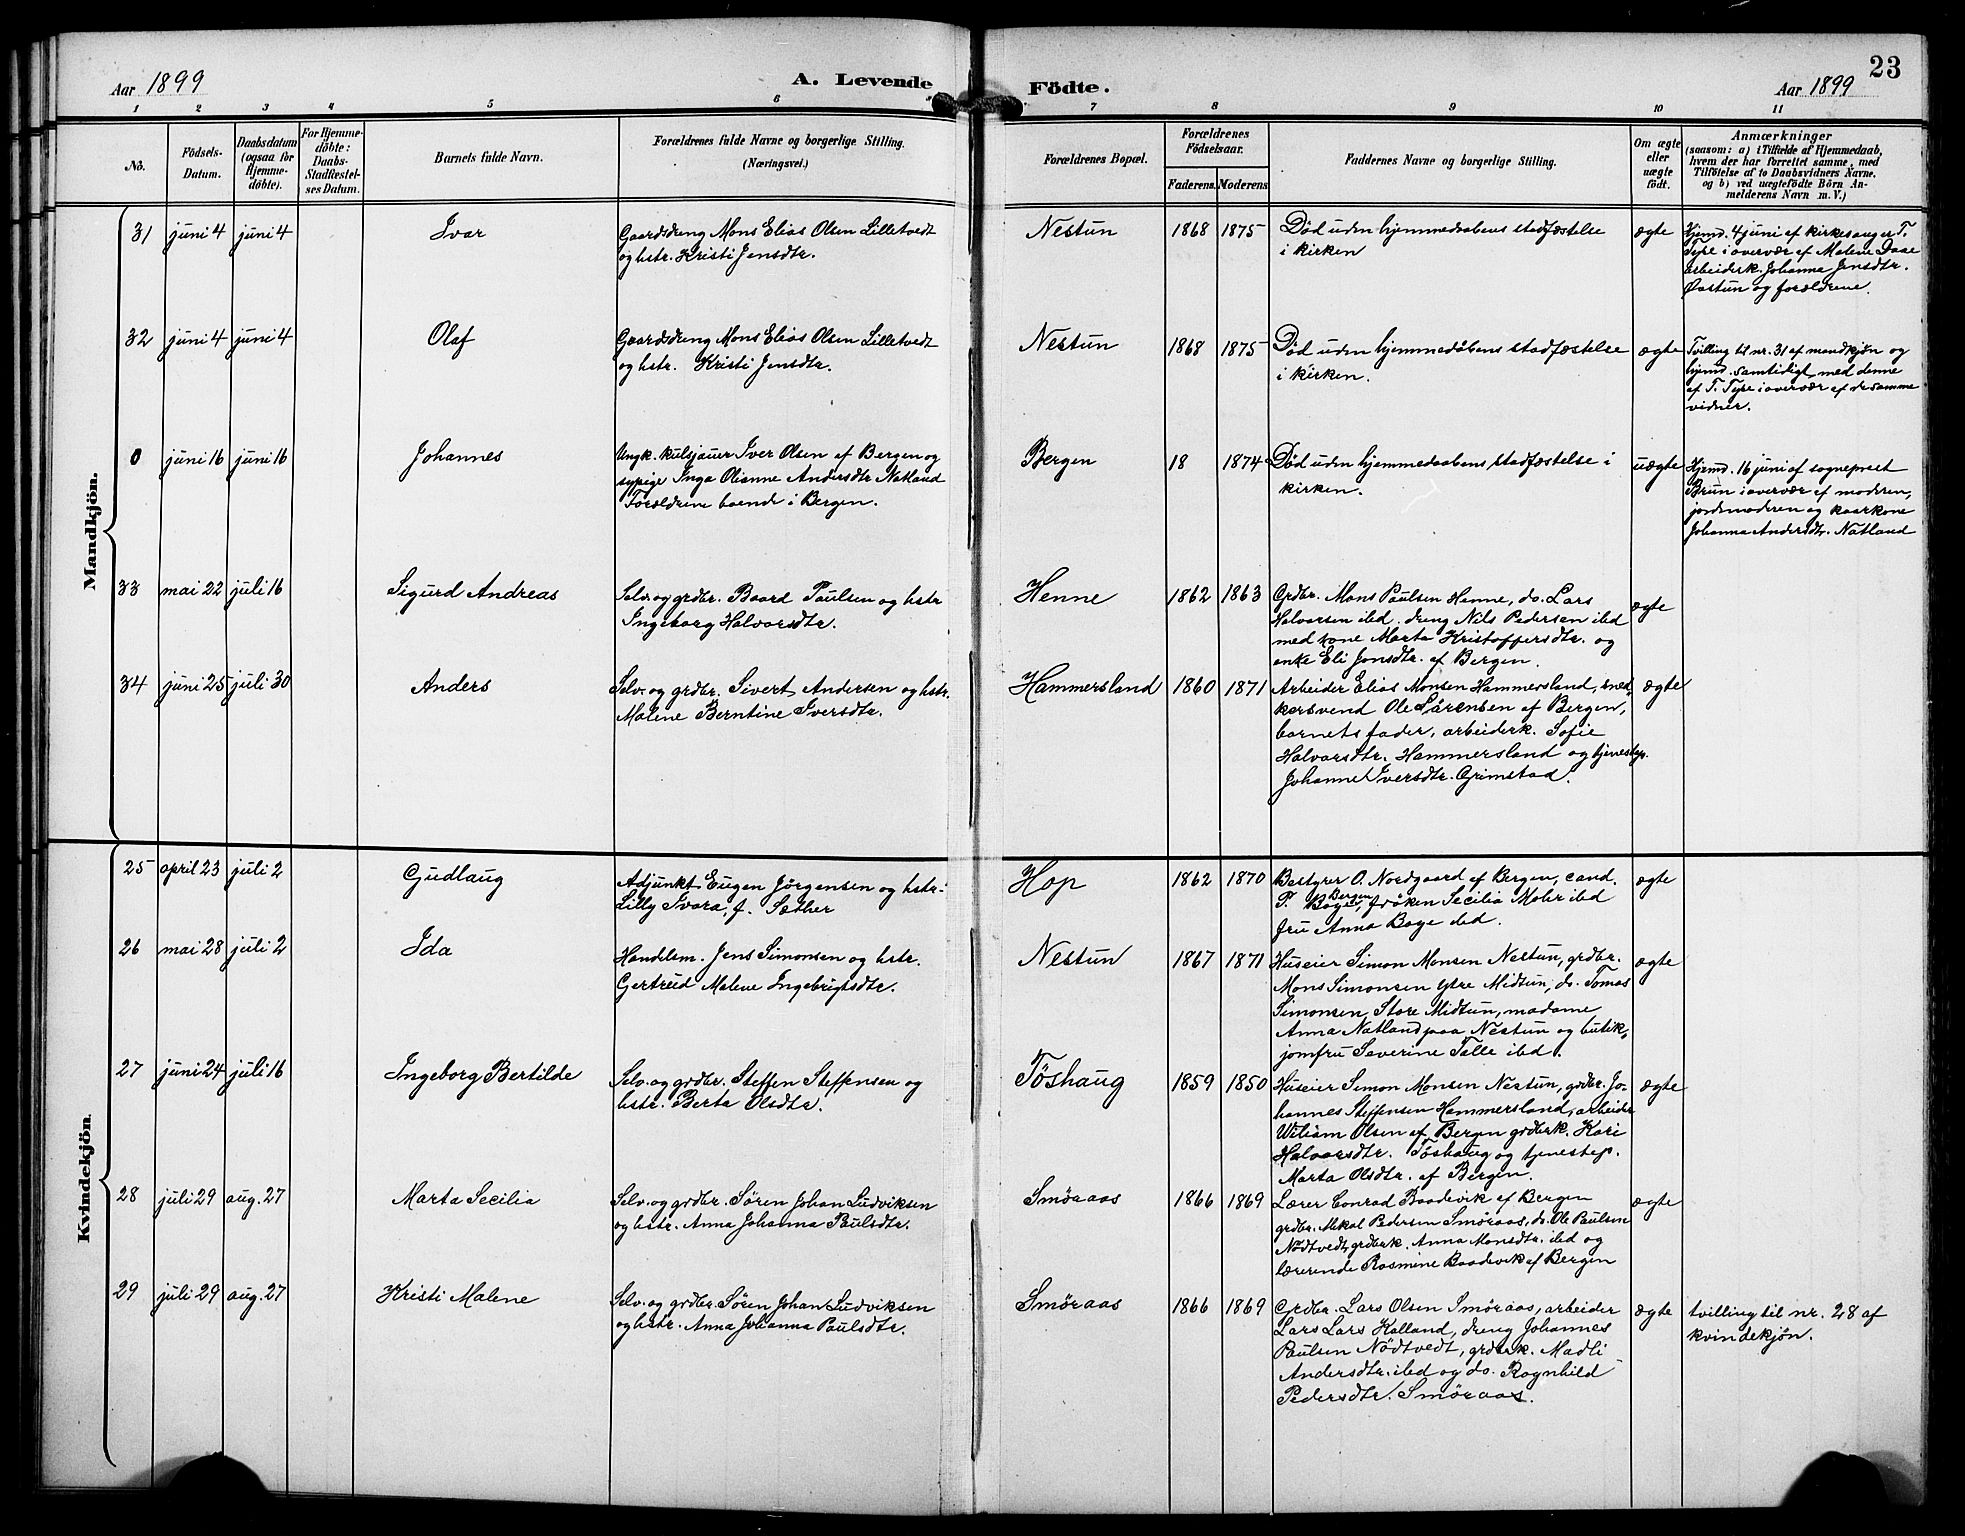 23
Aar 1899
A. Levende
Födte.
Aar 1899
1 2 3 4 5 6 7 8 9 10 11
No.
Födsels-
Datum.
Daabsdatum
(ogsaa for
Hjemme-
döbte).
For Hjemme-
döbte:
Daabs-
Stadfestel-
ses Datum.
Barnets fulde Navn.
Forældrenes fulde Navne og borgerlige Stilling.
(Næringsvei.)
Forældrenes Bopæl.
Forældrenes
Födselsaar.
Faderens.
Moderens
Faddernes Navne og borgerlige Stilling.
Om ægte
eller
uægte
födt.
Anmærkninger
(saasom: a) i Tilfælde af Hjemmedaab,
hvem der har forrettet samme, med
Tilföielse af to Daabsvidners Navne,
og b) ved uægtefödte Börn An-
melderens Navn m. V.)
Mandkjön.
31 juni 4 juni 4 Ivar
Gaardsdreng Mons Elias Olsen Lilletvedt
og hstr. Kristi Jensdtr.
Nestun 1868 1875
Död uden hjemmedaabens stadfæstelse
i kirken
ægte
Hjemd. 4 juni af kirkesanger T.
Tyse i overvær af Malene Daae
arbeiderk. Johanna Jensdtr.
Övstun og forældrene.
32 juni 4 juni 4 Olaf
Gaardsdreng Mons Elias Olsen Lilletvedt
og hstr. Kristi Jensdtr.
Nestun 1868 1875
Död uden hjemmedåbens stadfæstelse
i kirken.
ægte
Tvilling til nr. 31 af mandkjön og
hjemd. samtidigt med denne
af T. Tyse i overvær af de samme
vidner.
0 juni 16 juni 16 Johannes
Ungk. kulsjauer Iver Olsen af Bergen og
sypige Inga Olianne Andersdtr Natland
Forældrene boende i Bergen.
Bergen 18 1874
Död uden hjemmedaabens stadfæstelse i
kirken.
uægte
Hjemd. 16 juni af sognepræst
Brun i overvær af moderen,
jordemoderen og kaarkone
Johanna Andersdtr. Natland
33 mai 22 juli 16 Sigurd Andreas
Selv. og grdbr. Baard Paulsen og hstr
Ingeborg Halvorsdtr.
Henne 1862 1863
Grdbr. Mons Paulsen Henne, do. Lars
Halvorsen ibd. dreng Nils Pedersen ibd
med kone Marta Kristoffersdtr. og
enke Eli Jonsdtr. af Bergen.
ægte
34 juni 25 juli 30 Anders
Selv. og grdbr. Sivert Andersen og hstr.
Malene Berntine Iversdtr.
Hammersland 1860 1871
Arbeider Elias Monsen Hammersland, sned-
kersvend Ole Sörensen af Bergen,
barnets fader, arbeiderk. Sofie
Halvorsdtr. Hammersland og tjenestep.
Johanne Iversdtr. Grimstad.
ægte
Kvindekjön
25 april 23 juli 2 Gudlaug
Adjunkt Eugen Jörgensen og hstr.
Lilly Svara, f. Sæther
Hop 1862 1870
Bestyrer O. Nordgaard af Bergen, cand.
P. Boye, Bergen frøken Secilia Mohr ibd
fru Anna Boge ibd.
ægte
26 mai 28 juli 2 Ida
Handelsm. Jens Simonsen og hstr.
Gertrud Malene Ingebrigtsdtr.
Nestun 1867 1871
Huseier Simon Monsen Nestun, grdbr.
Mons Simonsen ytre Midtun, do. Tomas
Simonsen, Store Midtun, madame
Anna Natland paa Nestun og butik-
jomfru Severine Talle ibd.
ægte
27 juni 24 juli 16 Ingeborg Bertilde
Selv. og grdbr. Steffen Steffensen og
hstr. Berta Olsdtr.
Töshaug 1859 1850
Huseier Simon Monsen Nestun, grdbr. Jo-
hannes Steffensen Hammersland, arbeider
Wiliam Olsen af Bergen grdbrk. Kari
Halvorsdtr. Töshaug og tjenestep.
Marta Olsdtr. af Bergen.
ægte
28 juli 29 aug. 27 Marta Secilia
Selv. og grdbr. Sören Johan Ludviksen
og hstr. Anna Johanna Paulsdtr.
Smöraas 1866 1869
Lærer Conrad Baadevik af Bergen
grdbr. Mikal Pedersen Smöraas, do. Ole Paulsen
Nödtvedt, grdbrk. Anna Monsdtr. ibd og
lærerinde Rasmine Baadevik af Bergen
ægte
29 juli 29 aug. 27 Kristi Malene
Selv. og grdbr. Sören Johan Ludviksen
og hstr. Anna Johanna Paulsdtr.
Smöraas 1866 1869
Grdbr. Lars Olsen Smöraas, arbeider
Lars Lars Kalland, dreng Johannes
Paulsen Nödtvedt, grdbrk. Madli
Andersdtr. ibd og do. Ragnhild
Pedersdtr. Smöraas.
ægte
tvilling til nr. 28 af
kvindekjön.